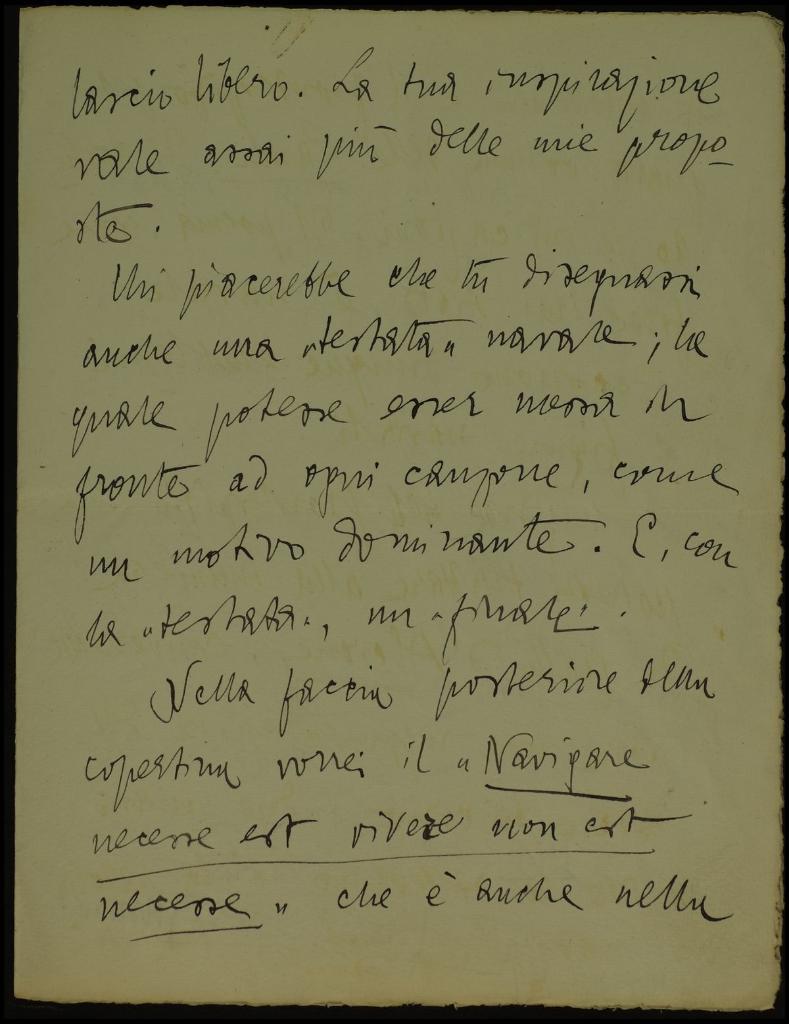 lascio libero. La tua inspirazione
vale assai più delle mie propo-
ste.
Mi piacerebbe che tu disegnassi
anche una „testata„ navale; la
quale potesse esser messa in
fronte ad ogni canzone, come
un motivo dominante. E, con
la „testata„, un „finale„.
Nella faccia posteriore della
copertina vorrei il „Navigare
necesse est vivere non est
necesse„ che è anche nella